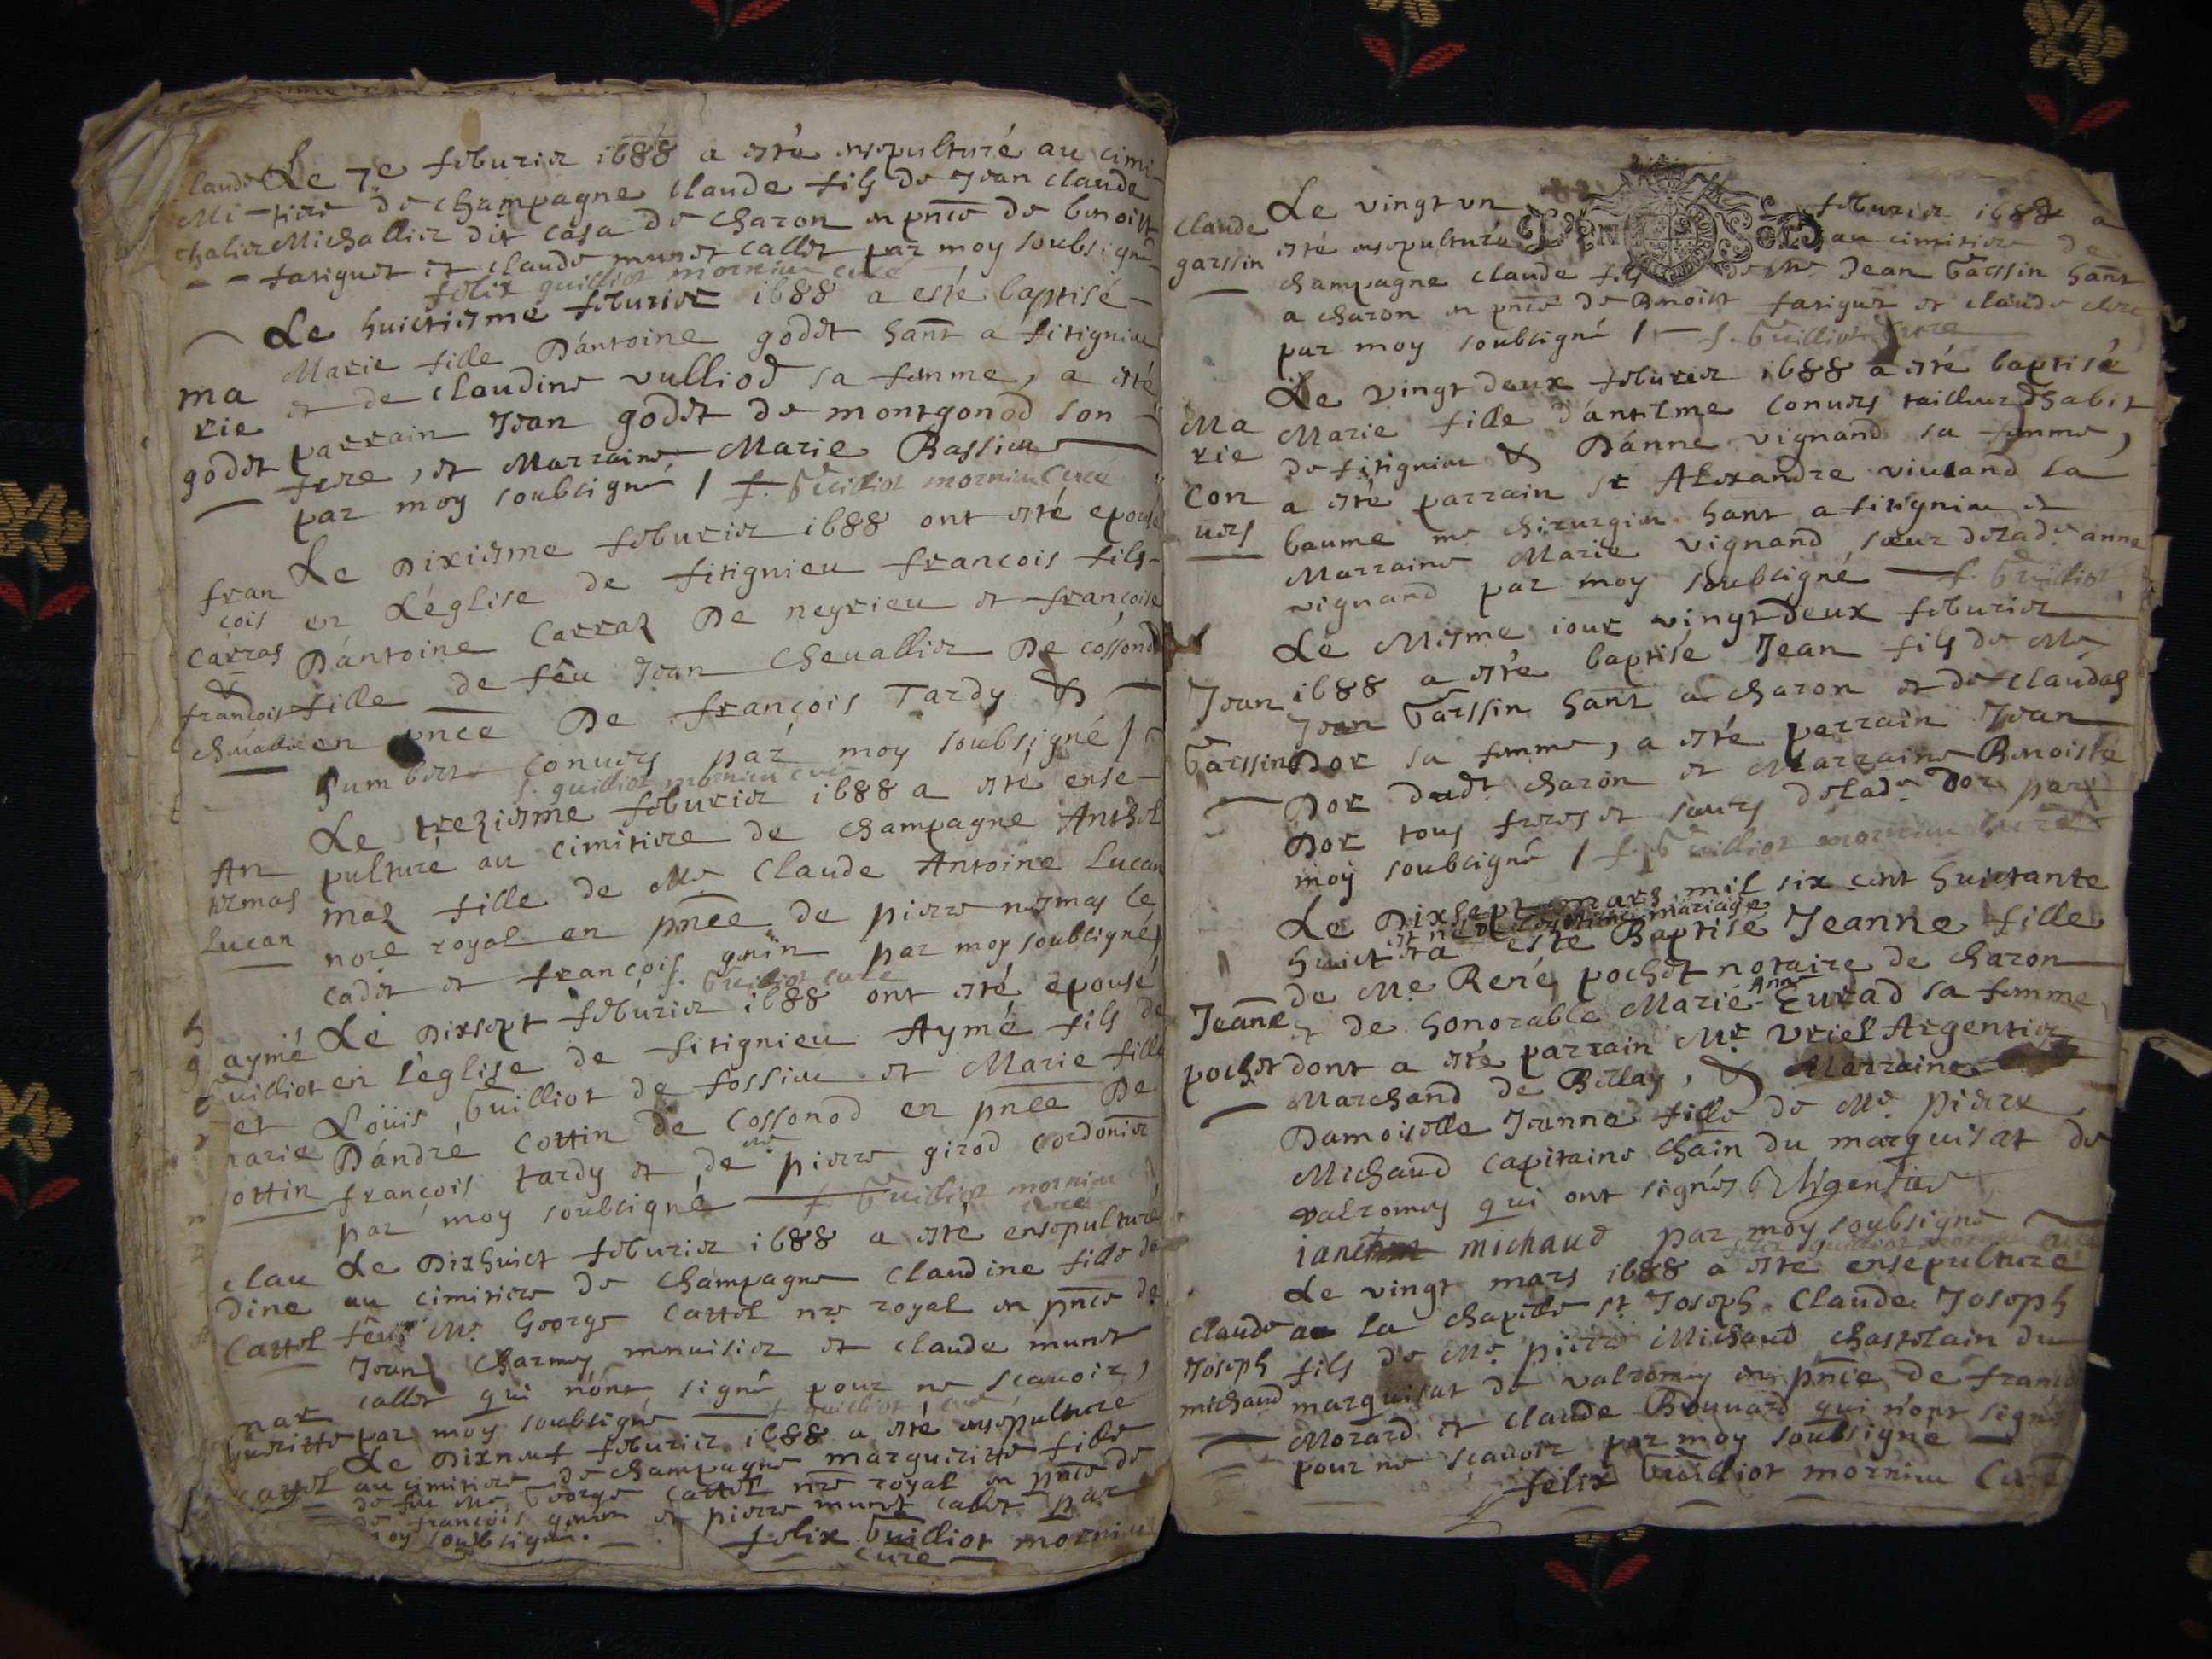 Le 7e feburier 1688 a esté ensepulturé au cimi
Claude
Mi - tiere de champagne claude fils de Jean claude
chalier Michallier dit casa de charon en pnce de benoist
fatiguet et claude munet callet par moy soubsigné
felix guilliot mornieu cure
Le huictiesme feburier 1688 a esté baptisé
Marie fille D'antoine godet hant a fitignieu
ma et de claudine vulliod sa femme, a esté
rie parrain Jean godet de montgonod son
godet frere, et Marraine Marie Bassieu
par moy soubsigné / f. Guilliot mornieu Cure
Le Dixiesme feburier 1688 ont esté epousé
fran en L'église de fitignieu francois fils
cois D'antoine Carraz De neyrieu et francoise
Carras fille de feu Jean Cheuallier De cossonod
&
francoise
cheuallier en pnce De françois Tardy &
humbert conuers par moy soubsigné /
f. guilliot mornieu cure
Le treziesme feburier 1688 a esté ense-
pulturé au cimitiere de champagne Anthel
An
telmas maz fille de Me Claude Antoine Lucan
Lucan nore royal en pnce de pierre mesmay le
cadet et françois genin par moy soubsigné
f. Guilliot cure
Le Dixsept feburier 1688 ont esté epousé
aymé en l'église de fitignieu Aymé fils de
Guilliot Loüis Guilliot de fossieu et Marie fille
et D'andré Cottin de Cossonod en pnce De
marie françois tardy et de me pierre girod cordonier
Cottin par moy soubsigné f Guilliot mornieu
cure
Le Dixhuict feburier 1688 a esté ensepulturé
clau au cimitiere de Champagne Claudine fille de
dine feu Me George Cattel nre royal en pnce de
Cattel Jean Charmey menuisier et claude munet
callet qui n'ont signé pour ne scauoir,
par moy soubsigné f guilliot curé
mar
gueritte Le Dixneuf feburier 1688 a esté ensepulture
Cattel au cimitiere de champagne margueritte fille
de feu Me George Cattel nre royal en pnce de
de françois genin et pierre munet callet par
moy soubsigné.
felix Guilliot mornieu
cure
Le vingt un feburier 1688 a
Claude esté ensepulturé au cimitiere de
garssin champagne claude fils de Me Jean Garssin hant
a charon en pnce de Benoist fatiguet et claude clerc
par moy soubsigné / f. Guilliot Cure
Le vingt deux feburier 1688 a esté baptisé
Ma Marie fille d'antelme Conuers tailleur d'habit
rie de fitignieu & D'anne vignand sa femme,
Con a esté parrain sr Alexandre viuiand la
uers baume me chirurgien hant a fitignieu et
Marraine Marie vignand sœur de lade anne
vignand par moy soubsigné f. Guilliot
Le Mesme iour vingt deux feburier
Jean 1688 a esté baptisé Jean fils de Me
Jean Garssin hant a charon et de claudaz
Garssin Dor sa femme, a esté parrain Jean
Dor dudt charon et Marraine Benoiste
Dor tous freres et sœurs de lade Dor par
moy soubsigné / f. Guilliot mornieu Curé
Le Dixsept mars mil six cent huictante
et né de legitime mariage
huict a esté Baptisé Jeanne fille
de Me René pochet notaire de charon
Jeanne et de honorable Marie Anne Eurad sa femme
pochet dont a esté parrain Mr Vriel Argentier
Marchand de Bellay, & Marraine
Damoiselle Jeanne fille de Me pierre
Michaud Capitaine Chain du marquisat de
valromey qui ont signés VArgentier
iane michaud par moy soubsigné
felix guilliot mornieu curé
Le vingt mars 1688 a esté ensepulture
Claude a la chapelle st Joseph Claude Joseph
Joseph fils de Me pierre Michaud chastelain du
michaud marquisat de valromey en pnce de francois
Morard et claude Bouuard qui n'ont signé
pour ne sçauoir par moy soubsigné
felix Guilliot mornieu Curé